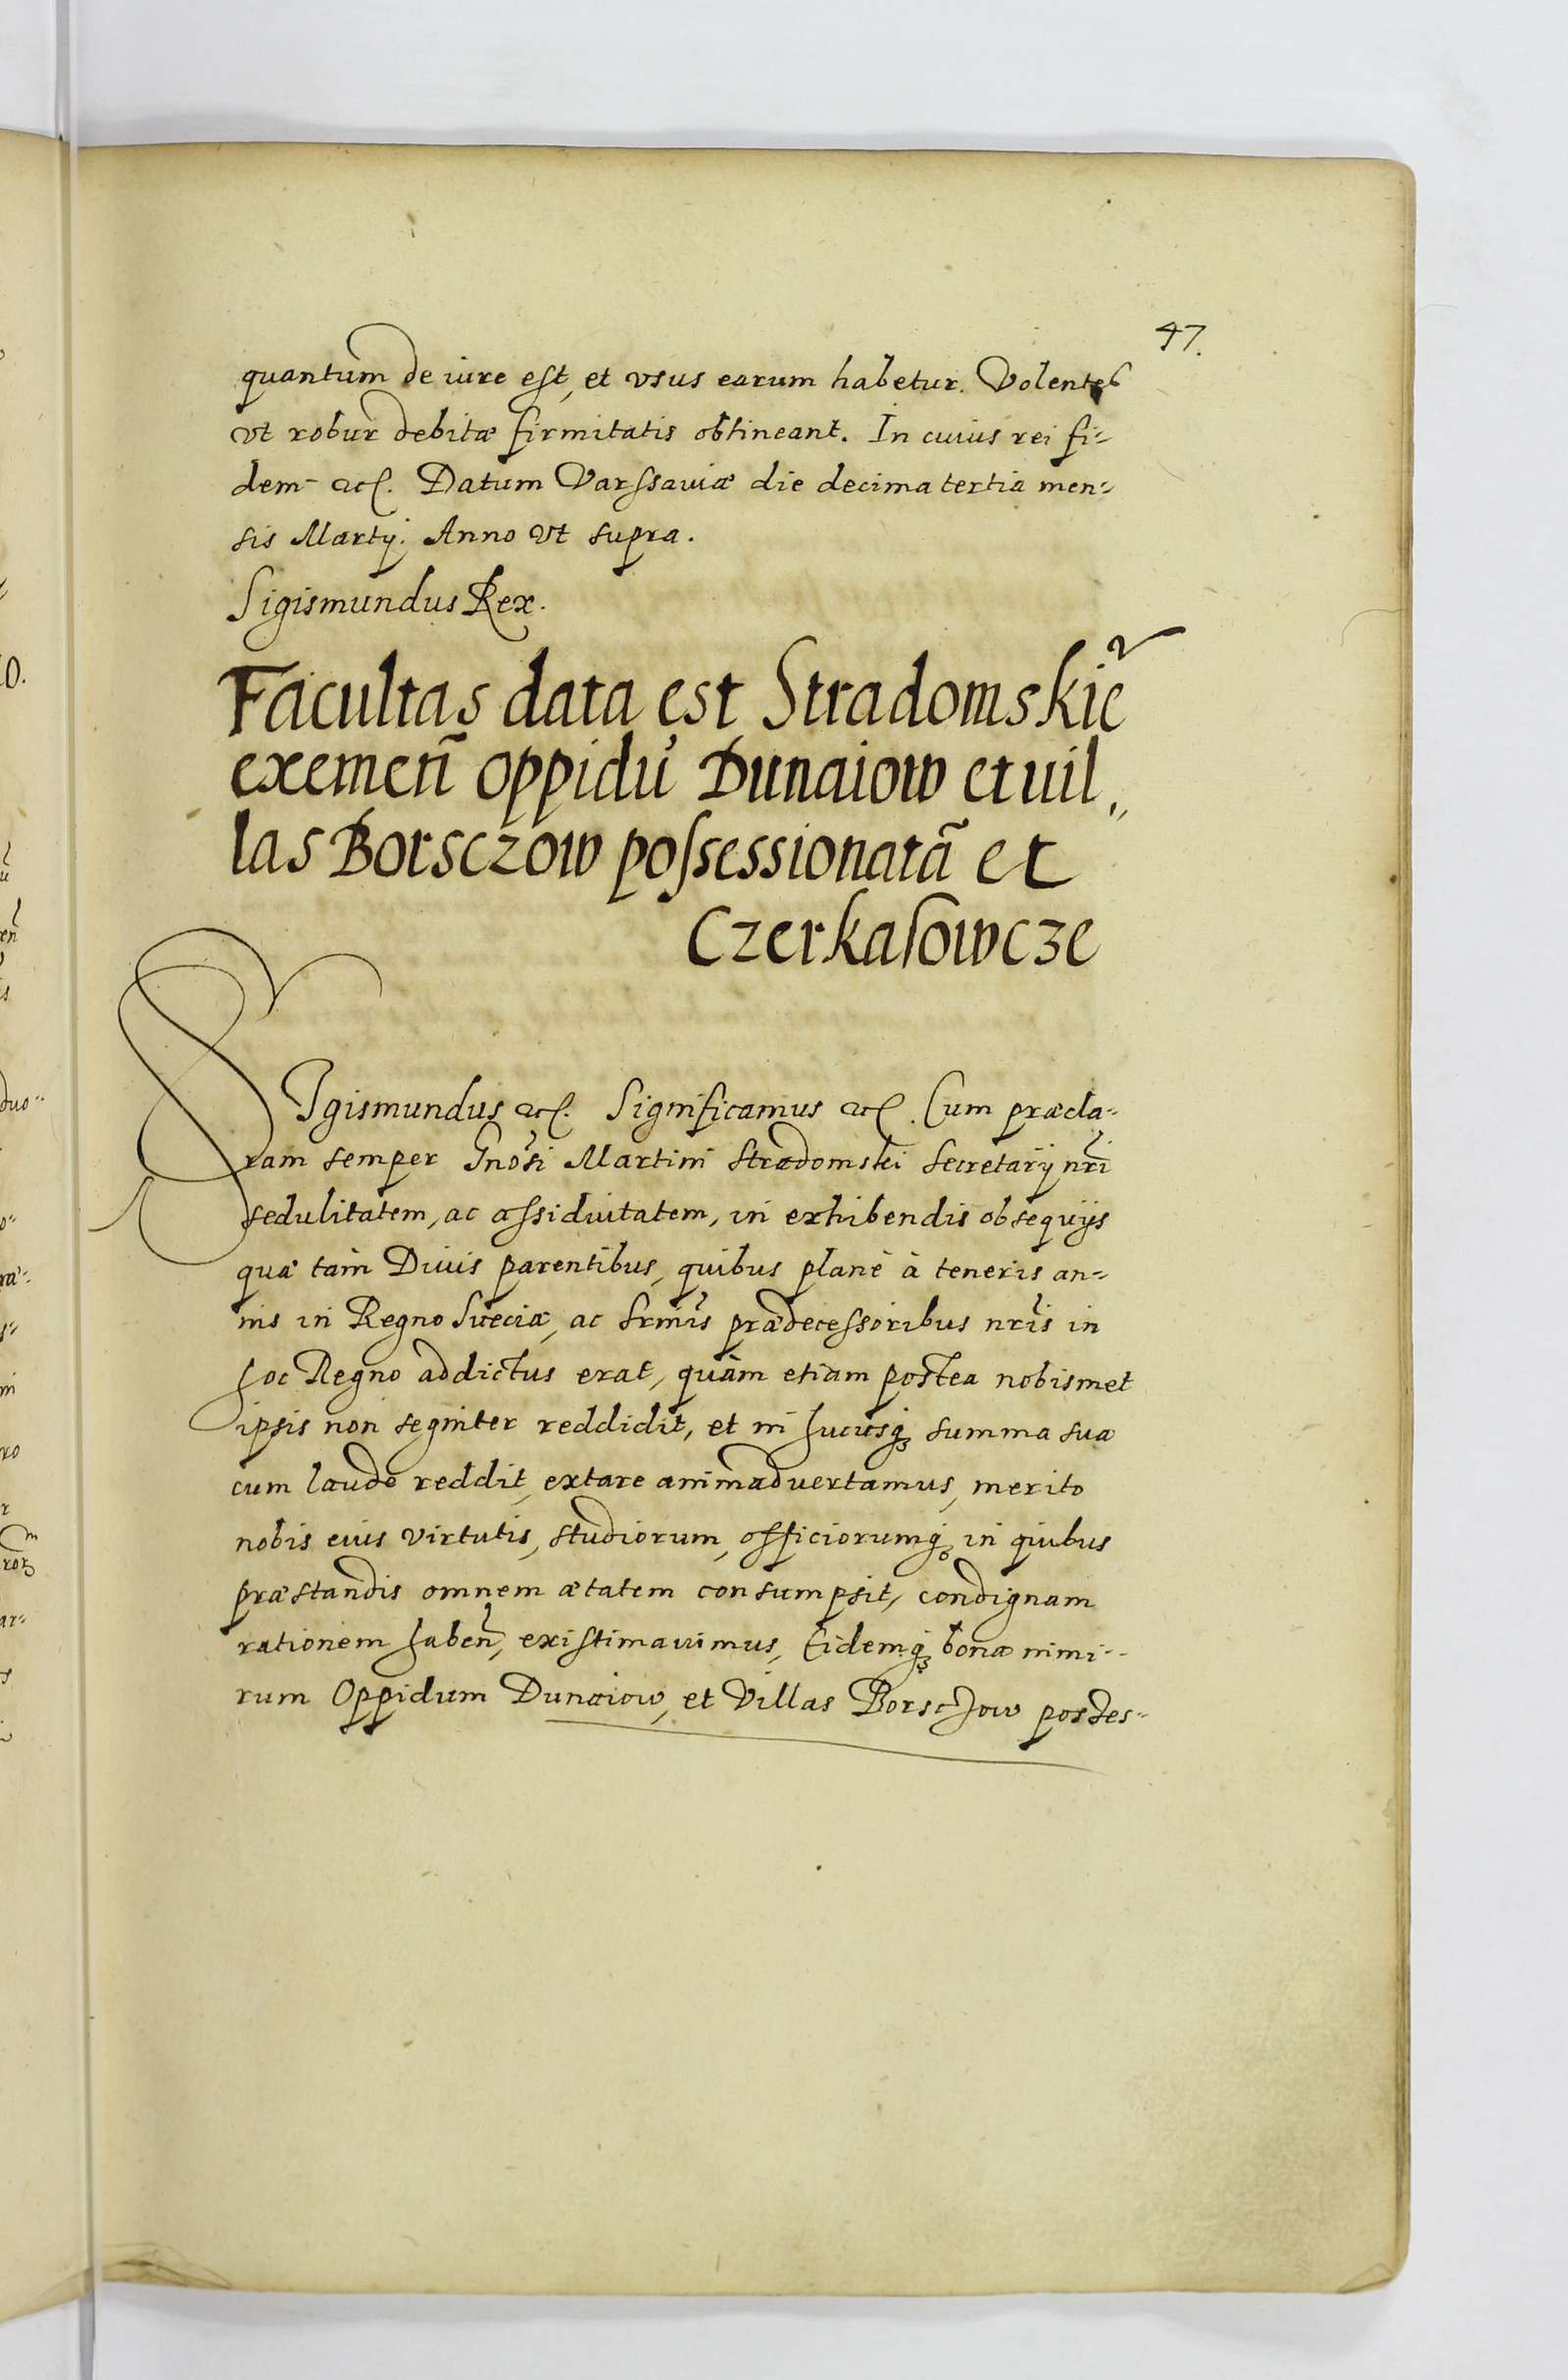 47.
quantum de iure est, et vsus earum habetur. Volentes
vt robur debitæ firmitatis obtineant. In cuius rei fi-
dem etc. Datum Varssauiæ die decima tertia men-
sis Martij. Anno vt supra.
Sigismundus Rex.
Facultas data est Stradomskie
exemeñ oppidũ Dunaiow et uil„
las Borsczow possessionatã et
Czerkasowcze
SIgismundus etc. Significamus etc. Cum præcla-
ram semper Gnosi Martini Stradomski Secretarij nri
sedulitatem, ac assiduitatem, in exhibendis obsequijs
quæ tàm Diuis parentibus, quibus planè à teneris an-
nis in Regno Sueciæ, ac Srmis prædecessoribus nris in
hoc Regno addictus erat, quàm etiam postea nobismet
ipsis non segniter reddidit, et in hucusq; summa sua
cum laude reddit, extare animaduertamus, merito
nobis eius virtutis, studiorum, officiorumq; in quibus
præstandis omnem ætatem consumpsit, condignam
rationem habeñ, existimauimus, Eidemq; bona nimi-
rum Oppidum Dunaiow, et Villas Borschow posses-